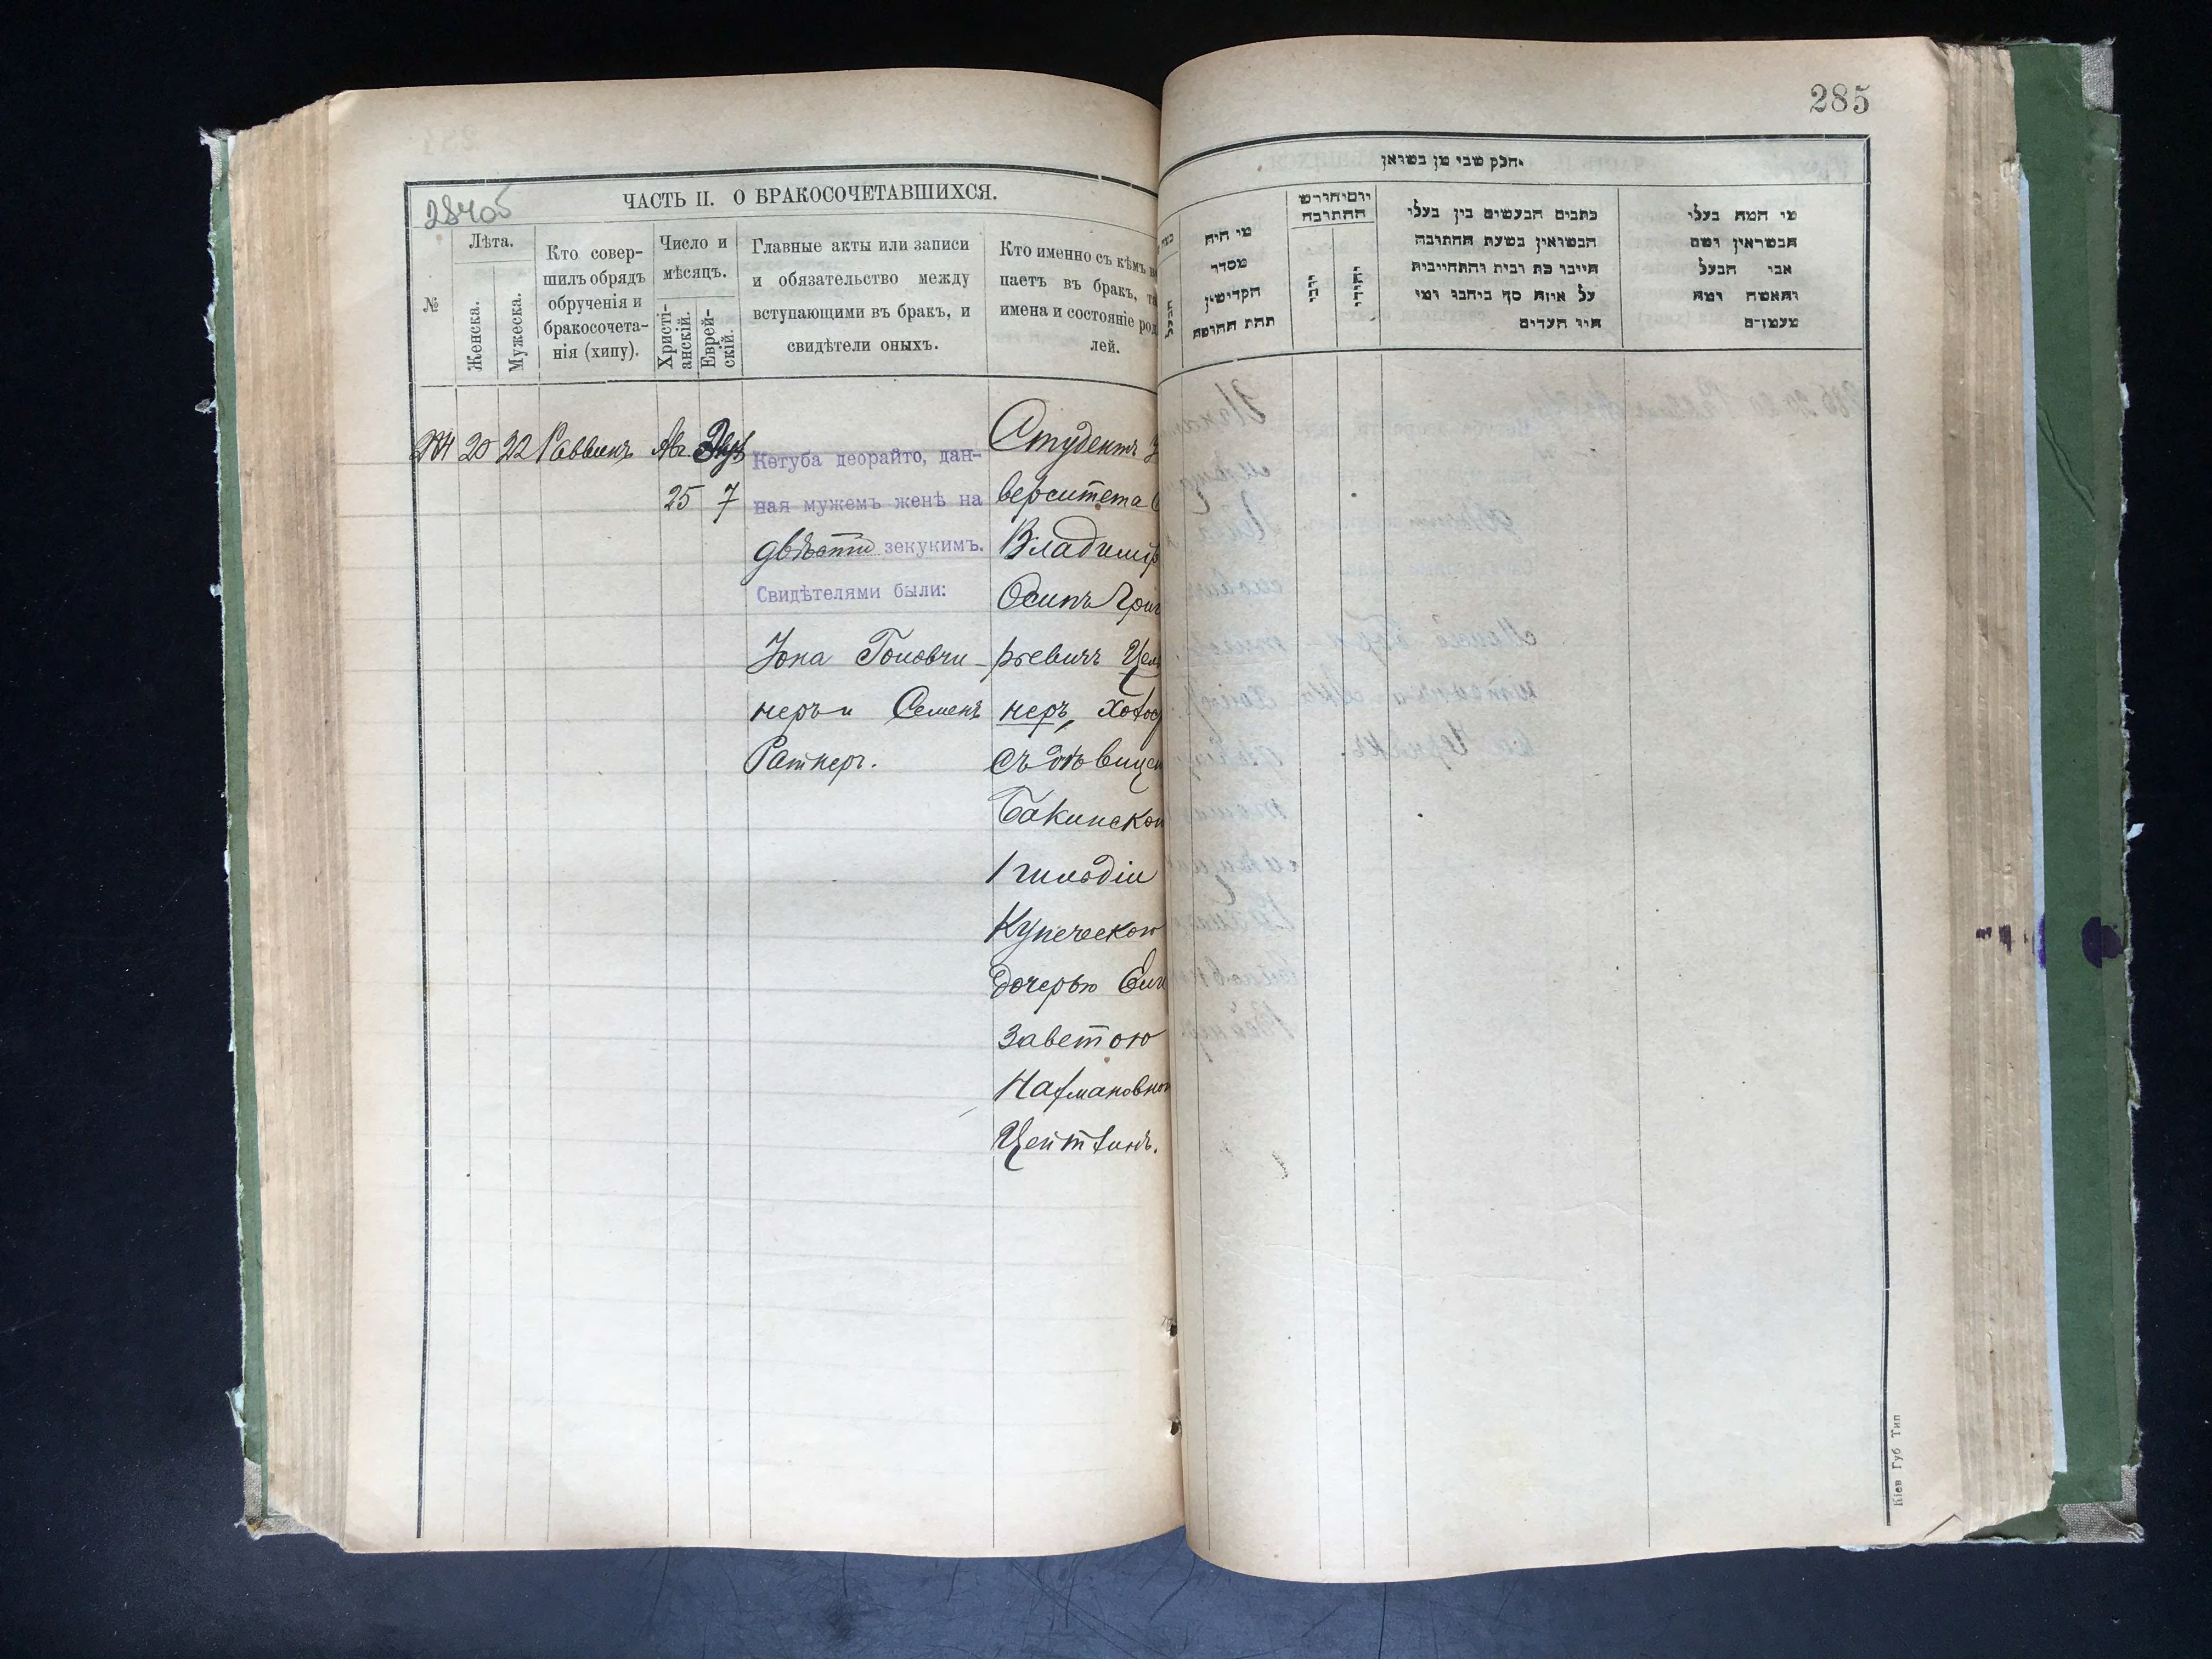 285
ЧАСТЬ II. О БРАКОСОЧЕТАВШИХСЯ.
№
Лѣта.
Женска.
Мужеска.
Кто совер-
шилъ обрядъ
обрученія и
бракосочета-
нія (хипу).
Число и
мѣсяцъ.
Христі-
анскій.
Еврей-
скій.
Главные акты или записи
и обязательство между
вступающими въ бракъ, и
свидѣтели оныхъ.
Кто именно съ кѣмъ
паетъ въ бракъ,
имена и состояніе род
лей.
20 22 Раввинъ Ав.
25 7
Кетуба деорайто, дан-
ная мужемъ женѣ на
двѣсти зекукимъ.
Свидѣтелями были:
Іона Головчи-
неръ и Семенъ
Ратнеръ.
Студентъ
верситета
Владимір
Осипъ Григ
рьевичъ
неръ, холос
съ дѣвицею
Бакинскою
1 гильдіи
Купеческою
дочерью Ели
заветою
Нахмановною
Цейтлинъ.
חלק שני מן
מי היה
מסדר
הקדושין
תחת החופה
הבעל
יום וחודש
החתונה
יוני
יהודי
כתבים הנעשים בין בעלי
הנשואין בשעת החתונה
היינו כת רבית והתחייבות
על איזה סך ניתנו ומי
היו העדים
מי המה בעלי
הנשואין ושם
אבי הבעל
והאשה ומה
מעמדם
Кіев Губ Тип